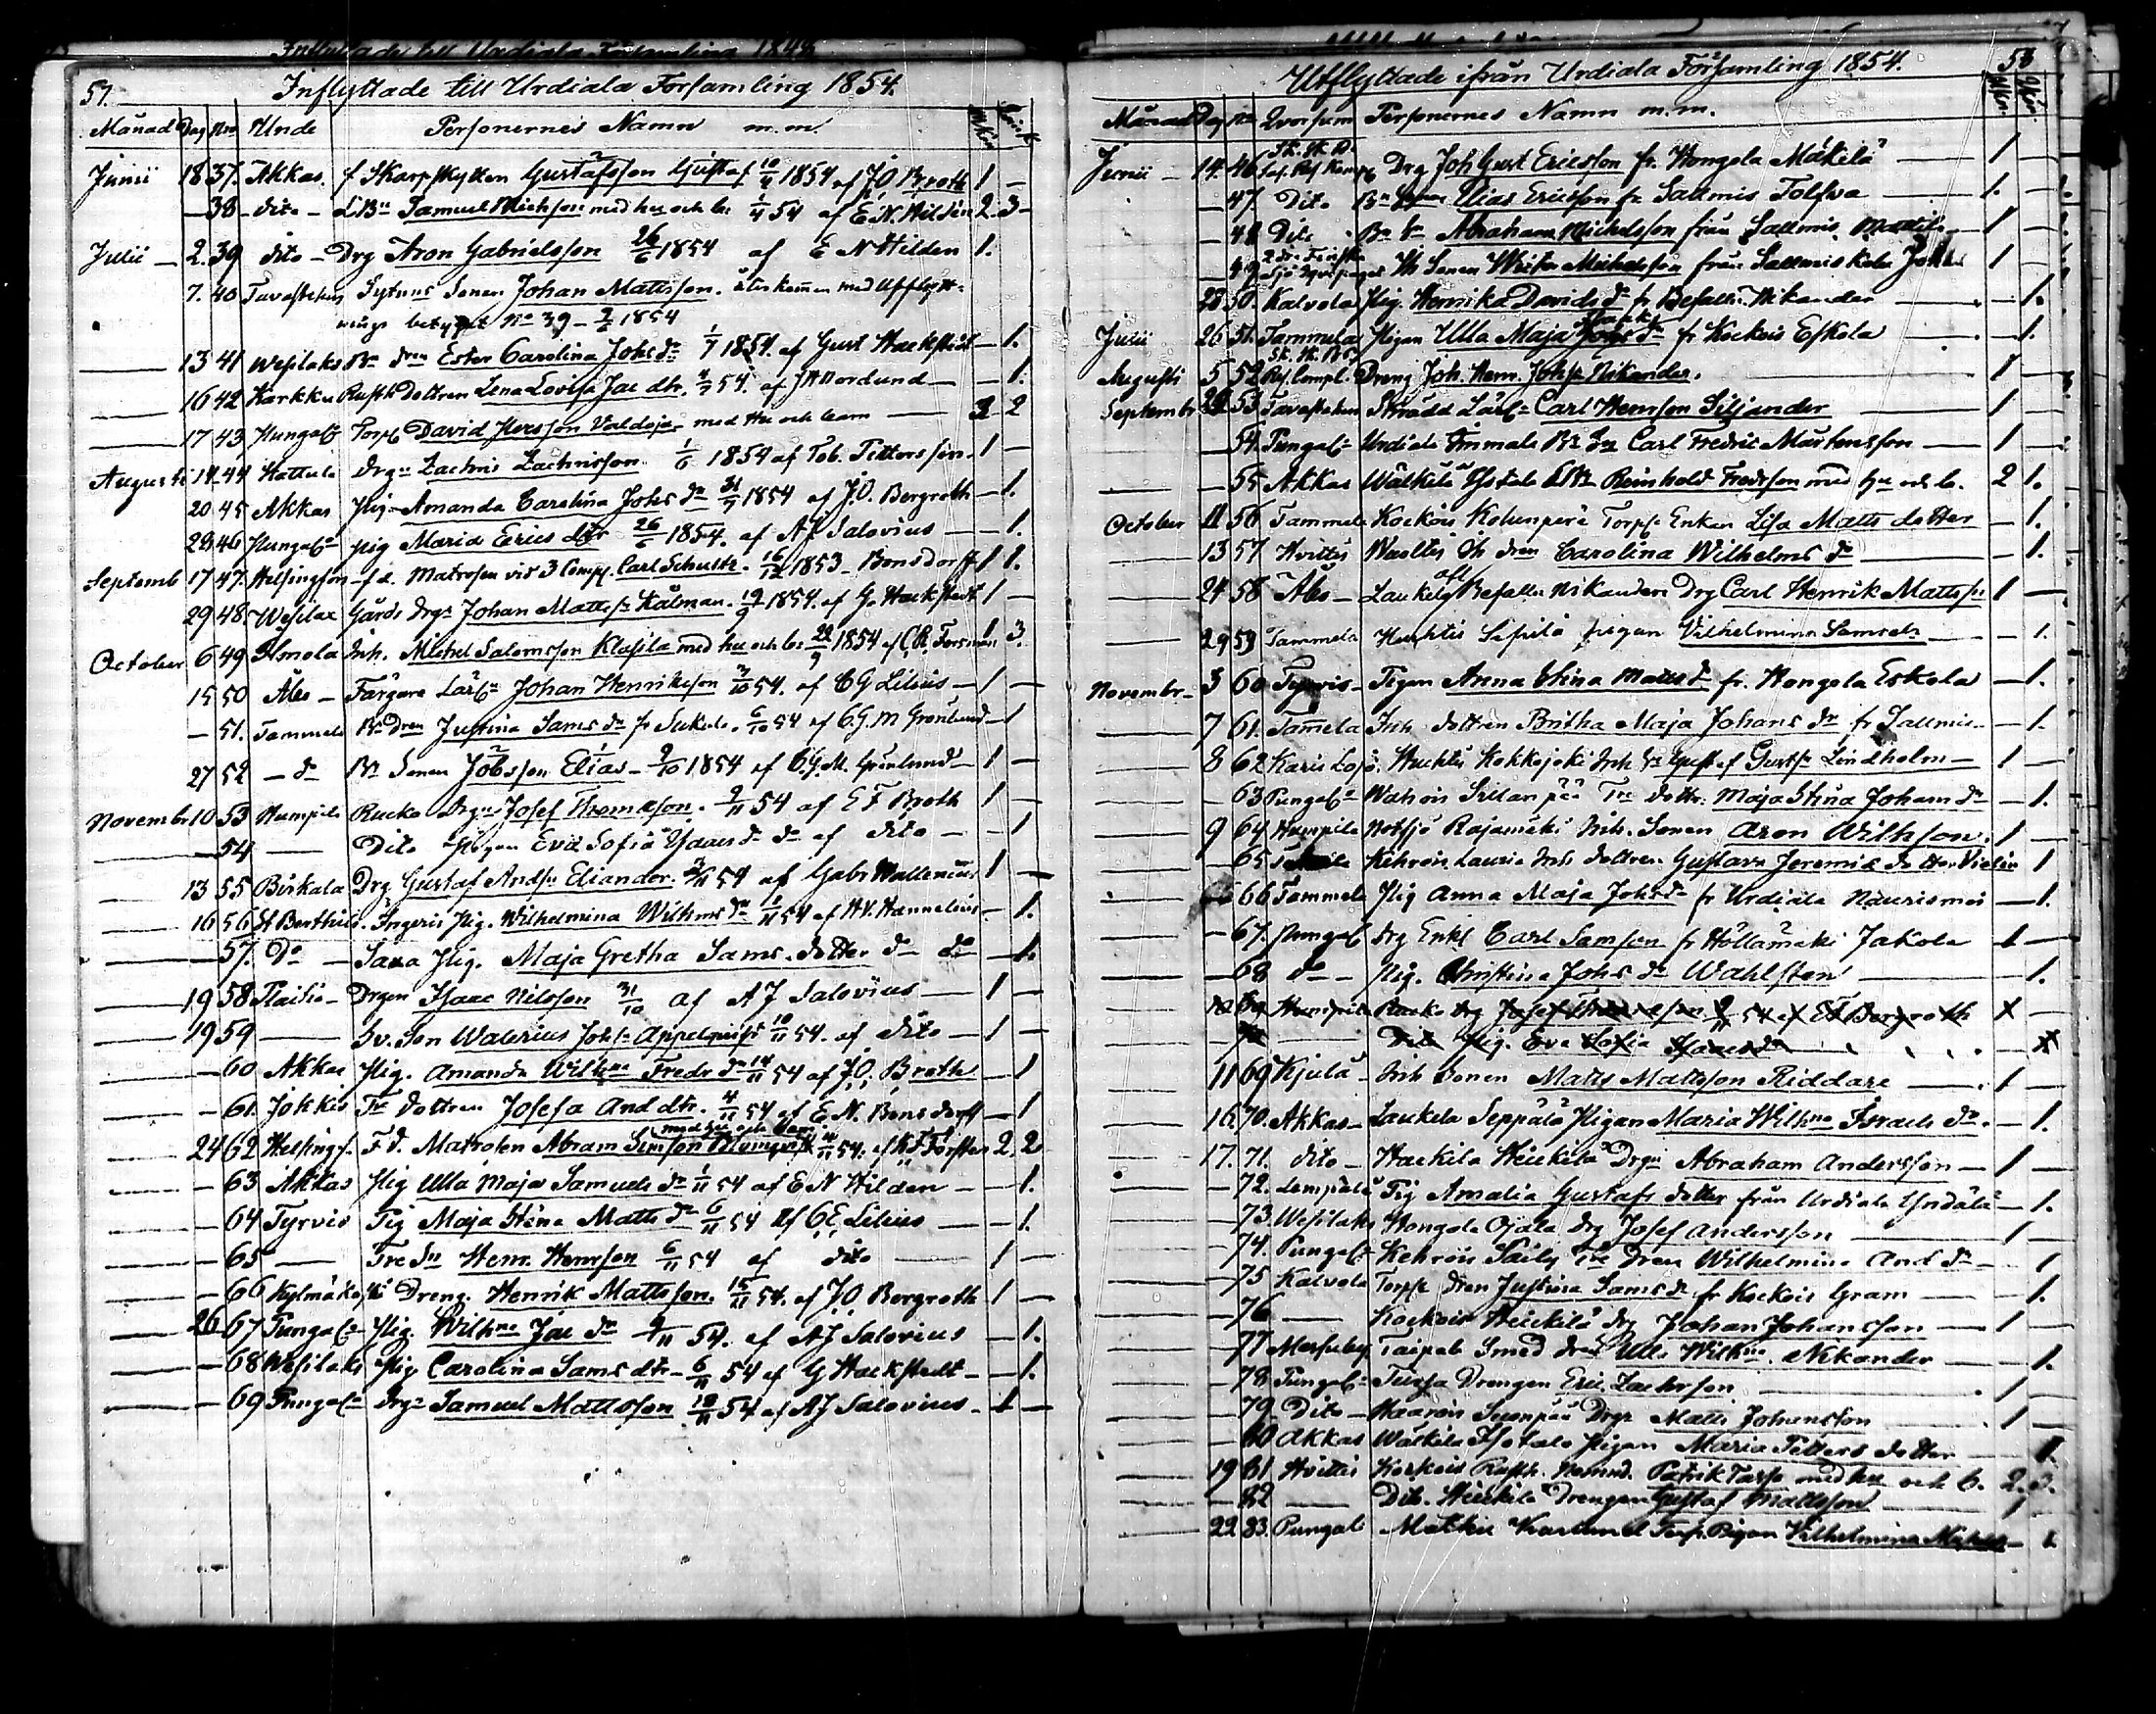 Inflyttade till Urdiala Församling 1848
57.
Inflyttade till Urdiala Församling 1854.
Månad Dag No Unde Personernes Namn m.m. M.kön
Junii 18 37. Akkas. f Skarpskytten Gustafsson Gustaf 10/4 1854 af J.O Broth 1 —
— 38 — dito — Samuel Michsson med hu och bn 1/4 54 af E. N. Hilden 2. 3 —
Julii — 2. 39 dito — Drg Aron Gabrielsson 26/6 1854 af E N Hilden 1.
7. 40 Tavastehus Sytnings Sonen Johan Mattsson. återkommen med Utflytt-
nings betyget No 39 — 1854
— 13 41 Wesilaks Bn dren Ester Carolina Johsdr 1/7 1854. af Gust Hackstedt — 1.
— 16 42 Karkku Rusth Dottren Lena Lovisa Jac dtr. 54. af — 1.
— 17 43 Pungal: Torp David Hersson Valdoja med Hu och barn — 2
Augusti 14 44 Hattula Drgn Zachris Zachrisson. 1/6 1854 af Tob. Tettorssin. 1 —
20 45 Akkas Pig. Amanda Carolina Johs dr 31/7 1854 af J.O. Bergroth — 1.
46 Pungal: pig Maria Erics dtr 26/6 1854. af AJ Salovius — 1.
Septemb 17 47. Helsingfors — f.d. Matrosen vid 3 Comp. Carl Schultz. 16/12 1853 — Bonsdorff 1 1.
29 48 Wesilax Gårds Drgn Johan Mattss: Kälman. 19/9 1854. af G. Hackstedt 1 —
October 6 49 Ilmola Inh. Michel Salomsson Klasila med hu och bn 22/9 1854 af C.R. Forsman 1 3.
15 50 Åbo — Färgare Lärl: Johan Henriksson 3/10 54. af C G Lilius — 1 —
— 51. Tammela Bn Dren Justina Sams dr fr Sukula. 6/10 54 af C.G.M Grönlund — 1
27 52 — do Bn Sonen Jobsson Elias — 9/10 1854 af C.G.M. Grönlund — 1 —
Novembr 10 53 Humpila Rucko Drgn Josef Thomasson. 9/11 54 af E F Broth 1 —
— 54 — Dito Pigan Eva Sofia Isaacs dr do af dito — — 1
— 13 55 Birkala Drg Gustaf Andss: Eliander. 54 af Gabr Wallenius 1 —
— 16 56 St Berthils. Ingeris Pig. Wilhelmina Wilhms dr 54 af H.V. Hannelius — 1.
— 57. Do — Saxa Pig. Maja Gretha Sams. dotter do do — 1.
— 19 58 Drgen Isaac Nilsson 31/10 af A J Salovius — 1 —
— 19 59 — Sv. Son Walerius Johs: Appelqvist 10/11 54. af dito — 1 —
— 60 Akkas Pig. Amanda Wilhna Fredr dr 14/11 54 af J.O. Broth — 1
— 61. Jokkis Tr dottren Josefa And dtr. 4/11 54 af E. N. Bonsdorff — 1
med hu och barn
— 24 62 Helsingf. F.d. Matrosen Abram Simson 54. af K F Forsten 2. 2
— 63 Akkas Pig Ulla Maja Samuels dr 1/11 54 af E N Hilden — 1.
— 64 Tyrvis Pig Maja Stina Matts dr 6/11 54 af C E Lilius — 1.
— 65 — Tre Sn Henr. Henrsson 6/11 54 af dito — 1 —
— 66 Kylmäkoski Dreng. Henrik Mattsson. 15/11 54. af J.O. Bergroth 1 —
— 26 67 Pungal: Pig. Wilhna Jac dr 9/11 54. af AJ Salovius — 1.
— 68 Wesilaks Pig Carolina Sams dtr — 6/11 54 af G Hackstedt — 1.
— 69 Pungal: Drgn Samuel Mattsson 18/11 54 af AJ Salovius — 1 —
58
Utflyttade ifrån Urdiala Församling 1854.
Månad Dag No Qvorsum Personernes Namn m.m. M.kön Q.kön.
Junii — 14. 46 Drg Joh Gust Ericsson fr. Hongola Mäkilä — 1 —
— 47 Dito Bn Sonen Elias Ericsson fr Sallmis Tolfva — 1. —
— 48 Dito Bn Sn Abraham Michelsson från Sallmis Mattila — 1 —
— 49 Sonen Michelsson från Sallmis 1 —
— 50. Kalvola Pig. Henrika Davids dr fr Befalln: Nikander — 1.
Julii 26 51. Tammela Pigan Ulla Maja fr Kockois Eskola — 1.
Augusti 5 52 Ref. Compl. Dreng Joh. Henr. Johss: Nikander. — 1 —
Septembr 53 Tavastehus Skrädd Lärl: Carl Henrsson Siljander — 1
— 54. Pungal: Urdiala Bn Sn Carl Fredric Mårtensson — 1
— 55 Akkas Wälkilä Reinhold Fredrsson med hu och b. 2 1.
October 11 56 Tammela Kockois Kolunperä Torps Enkan Lisa Matts dotter — 1.
— 13 57 Hvittis dren Carolina Wilhelms dr — 1.
— 24 58 Åbo — Laukela Befalln Nikanders Drg Carl Henrik Mattss: 1 —
— 29 59 Tammela Huhtis Sipilä pigan Vilhelmina Samsdr — 1.
Novembr — 3 60 Tyrvis — Pigan Anna Stina Matts dr fr. Hongola Eskola — 1.
— 7 61. Tammela Inh dottren Britha Maja Johans dr fr Sallmis — 1.
— 8 62 Karis Lojo. Huhtis Kokkojoki Inh Sn Gustaf Gustss: Lindholm — 1
— 63 Pungal: Wahois Sillanpää Tre dottr. Maja Stina Johans dr — 1.
— 9 64 Humpila Notsjö Rajamäki Inh. Sonen Aron Wilhsson. 1 —
— 65 Kehrois Lauria Inh dottren Gustava Jeremiæ dotter 1
— 66 Tammela Pig Anna Maja Johsdr fr Urdiala — 1.
— 67. Pungal Drg Enkl Carl Samsson fr Höllämäki Jakola 1 —
— 68 do — Pig. Christina Johs dr Wahlsten — 1.
Humpila Rucko Drg Josef Thomasson 9/11 54 af EF Bergroth
Dito Pig. Eva Sofia Isaacs dr
— 11 69 Kjulå — Inh Sonen Matts Mattsson Riddare — 1 —
— 16. 70. Akkas — Laukela Seppälä Pigan Maria Wilhna Israels dr. — 1.
— 17. 71. dito — Hackila Heickilä Drgn Abraham Andersson — 1
— 72. Lempälä Pig Amalia Gustafs dotter från Urdiala Yrdälä — 1.
— 73. Wesilaks Hongola Ojala Drg Josef Andersson — 1
— 74. Pungal: Kehrois Säily Tre Dren Wilhelmina And dr — 1
— 75 Kalvola Torps Dren Justina Sams dr fr Kockois Gram — 1.
— 76 — Kockois Heickilä Drg Johan Johansson — 1
— 77 Taipale Smed dren Ulla Wilhna Nikander — 1.
— 78 Pungal: Tursa Drengen Eric Zachrsson 1
— 79. Dito — Haarois Suonpää Drgn Matts Johansson 1
— 80 Akkas Wälkilä Pigan Maria Petters dotter — 1.
— 19 81 Hvittis Kockois Rusth. Patrik med hu och b. 2. 3.
— 82 — Dito. Heickilä Drengen Gustaf Mattsson — 1
— 22 83. Pungal: Matku Pigan Vilhelmina — 1